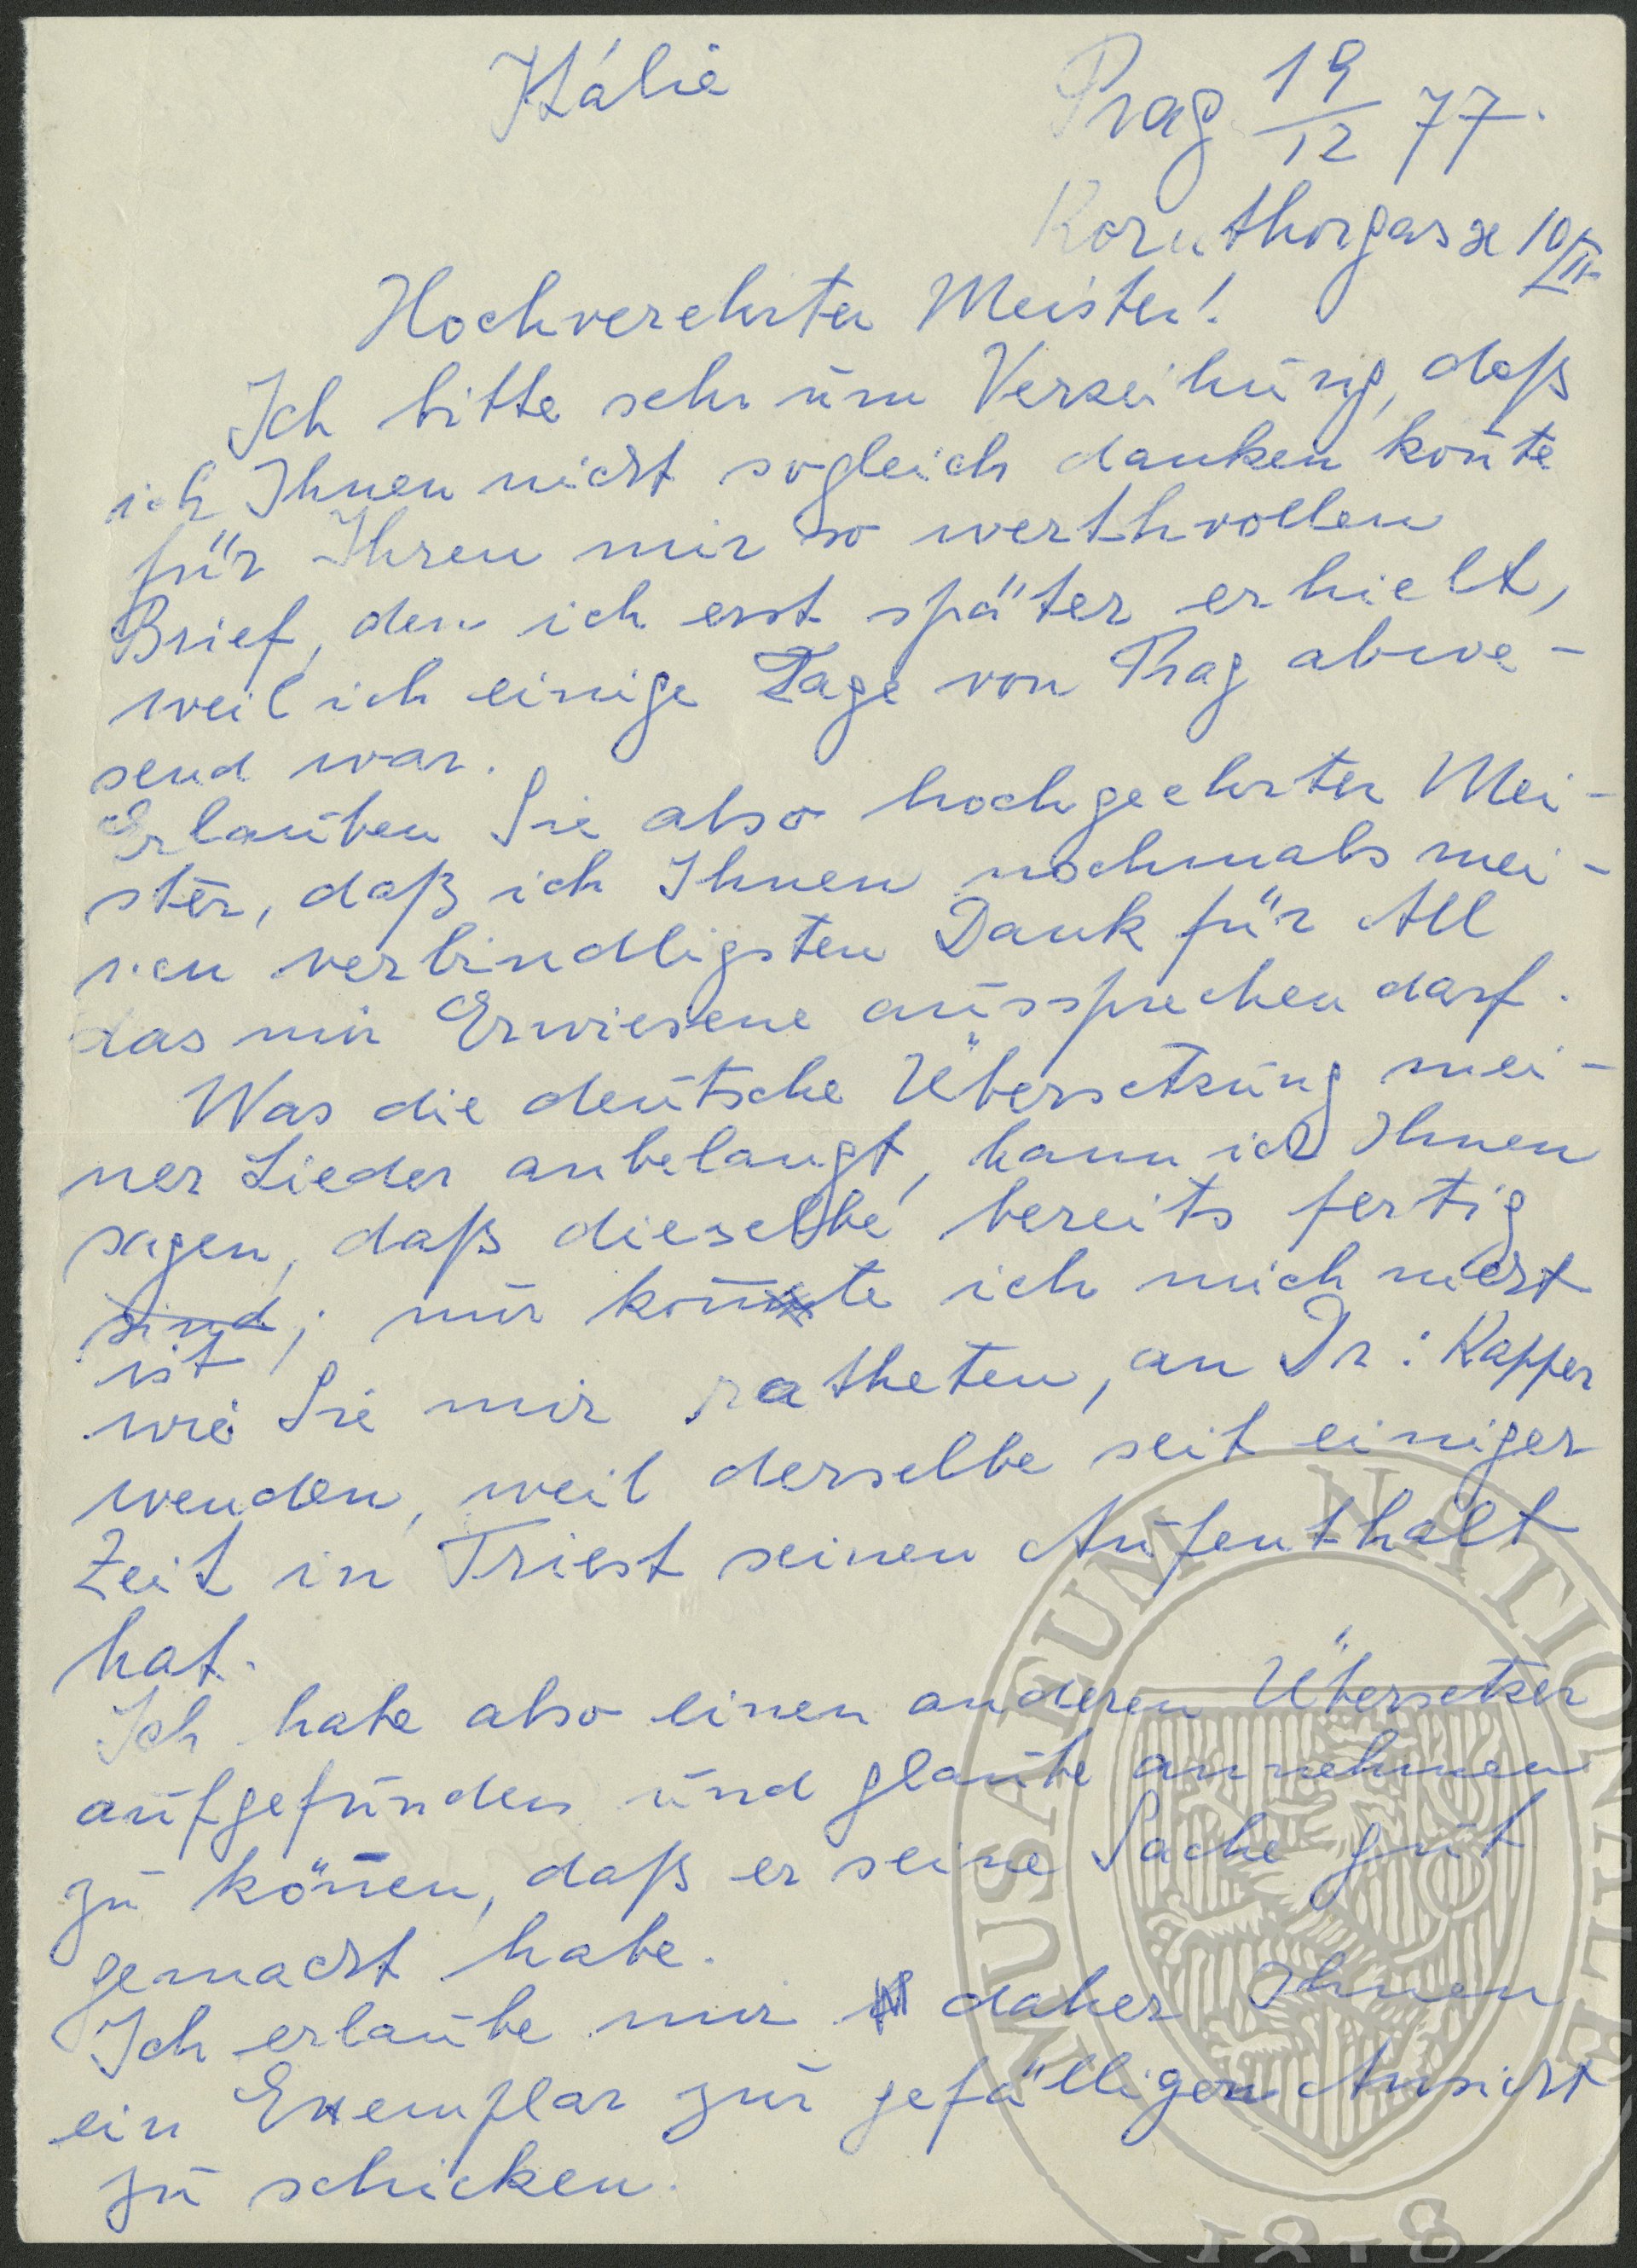 Prag 19/12 77.
Kornthorgasse 10/II
Hochverehrter Meister!
Ich bitte sehr um Verzeihung, daß
ich Ihnen nicht sogleich danken koñte
für Ihren mir so werthvollen
Brief, den ich erst später erhielt,
weil ich einige Tage von Prag abwe-
send war.
Erlauben Sie also hochgeehrter Mei-
ster, daß ich Ihnen nochmals mei-
nen verbindligsten Dank für All
das mir Erwiesene aussprechen darf.
Was die deutsche Übersetzung mei-
ner Lieder anbelangt, kann ich Ihnen
sagen, daß dieselbe bereits fertig
sind; nur koñte ich mich nicht
ist
wie Sie mir ratheten, an Dr: Kapper
wenden, weil derselbe seit einiger
Zeit in Triest seinen Aufenthalt
hat.
Ich habe also einen anderen Übersetzer
aufgefunden und glaube annehmen
zu köñen, daß er seine Sache gut
gemacht habe.
Ich erlaube mir daher Ihnen
ein Exemplar zur gefälligen Ansicht
zu schicken.
MUSAEUM NATIONALE
1818